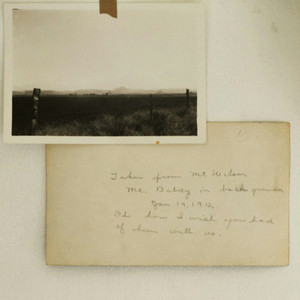 Taken from Mt Wilson
Mt. Baldy in back ground
Jan 19, 1912
Oh how I wish you had
of been with us.